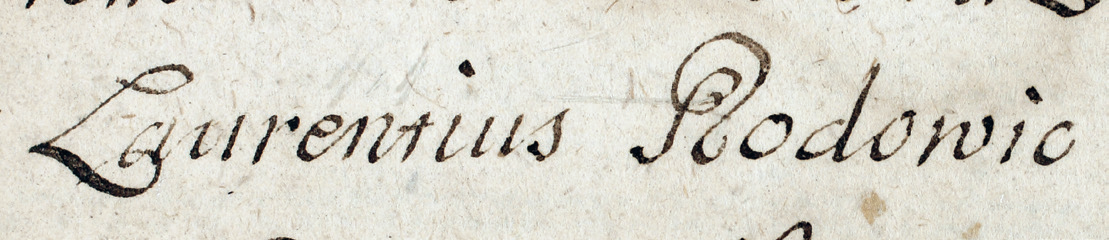 Laurentius Rodowic